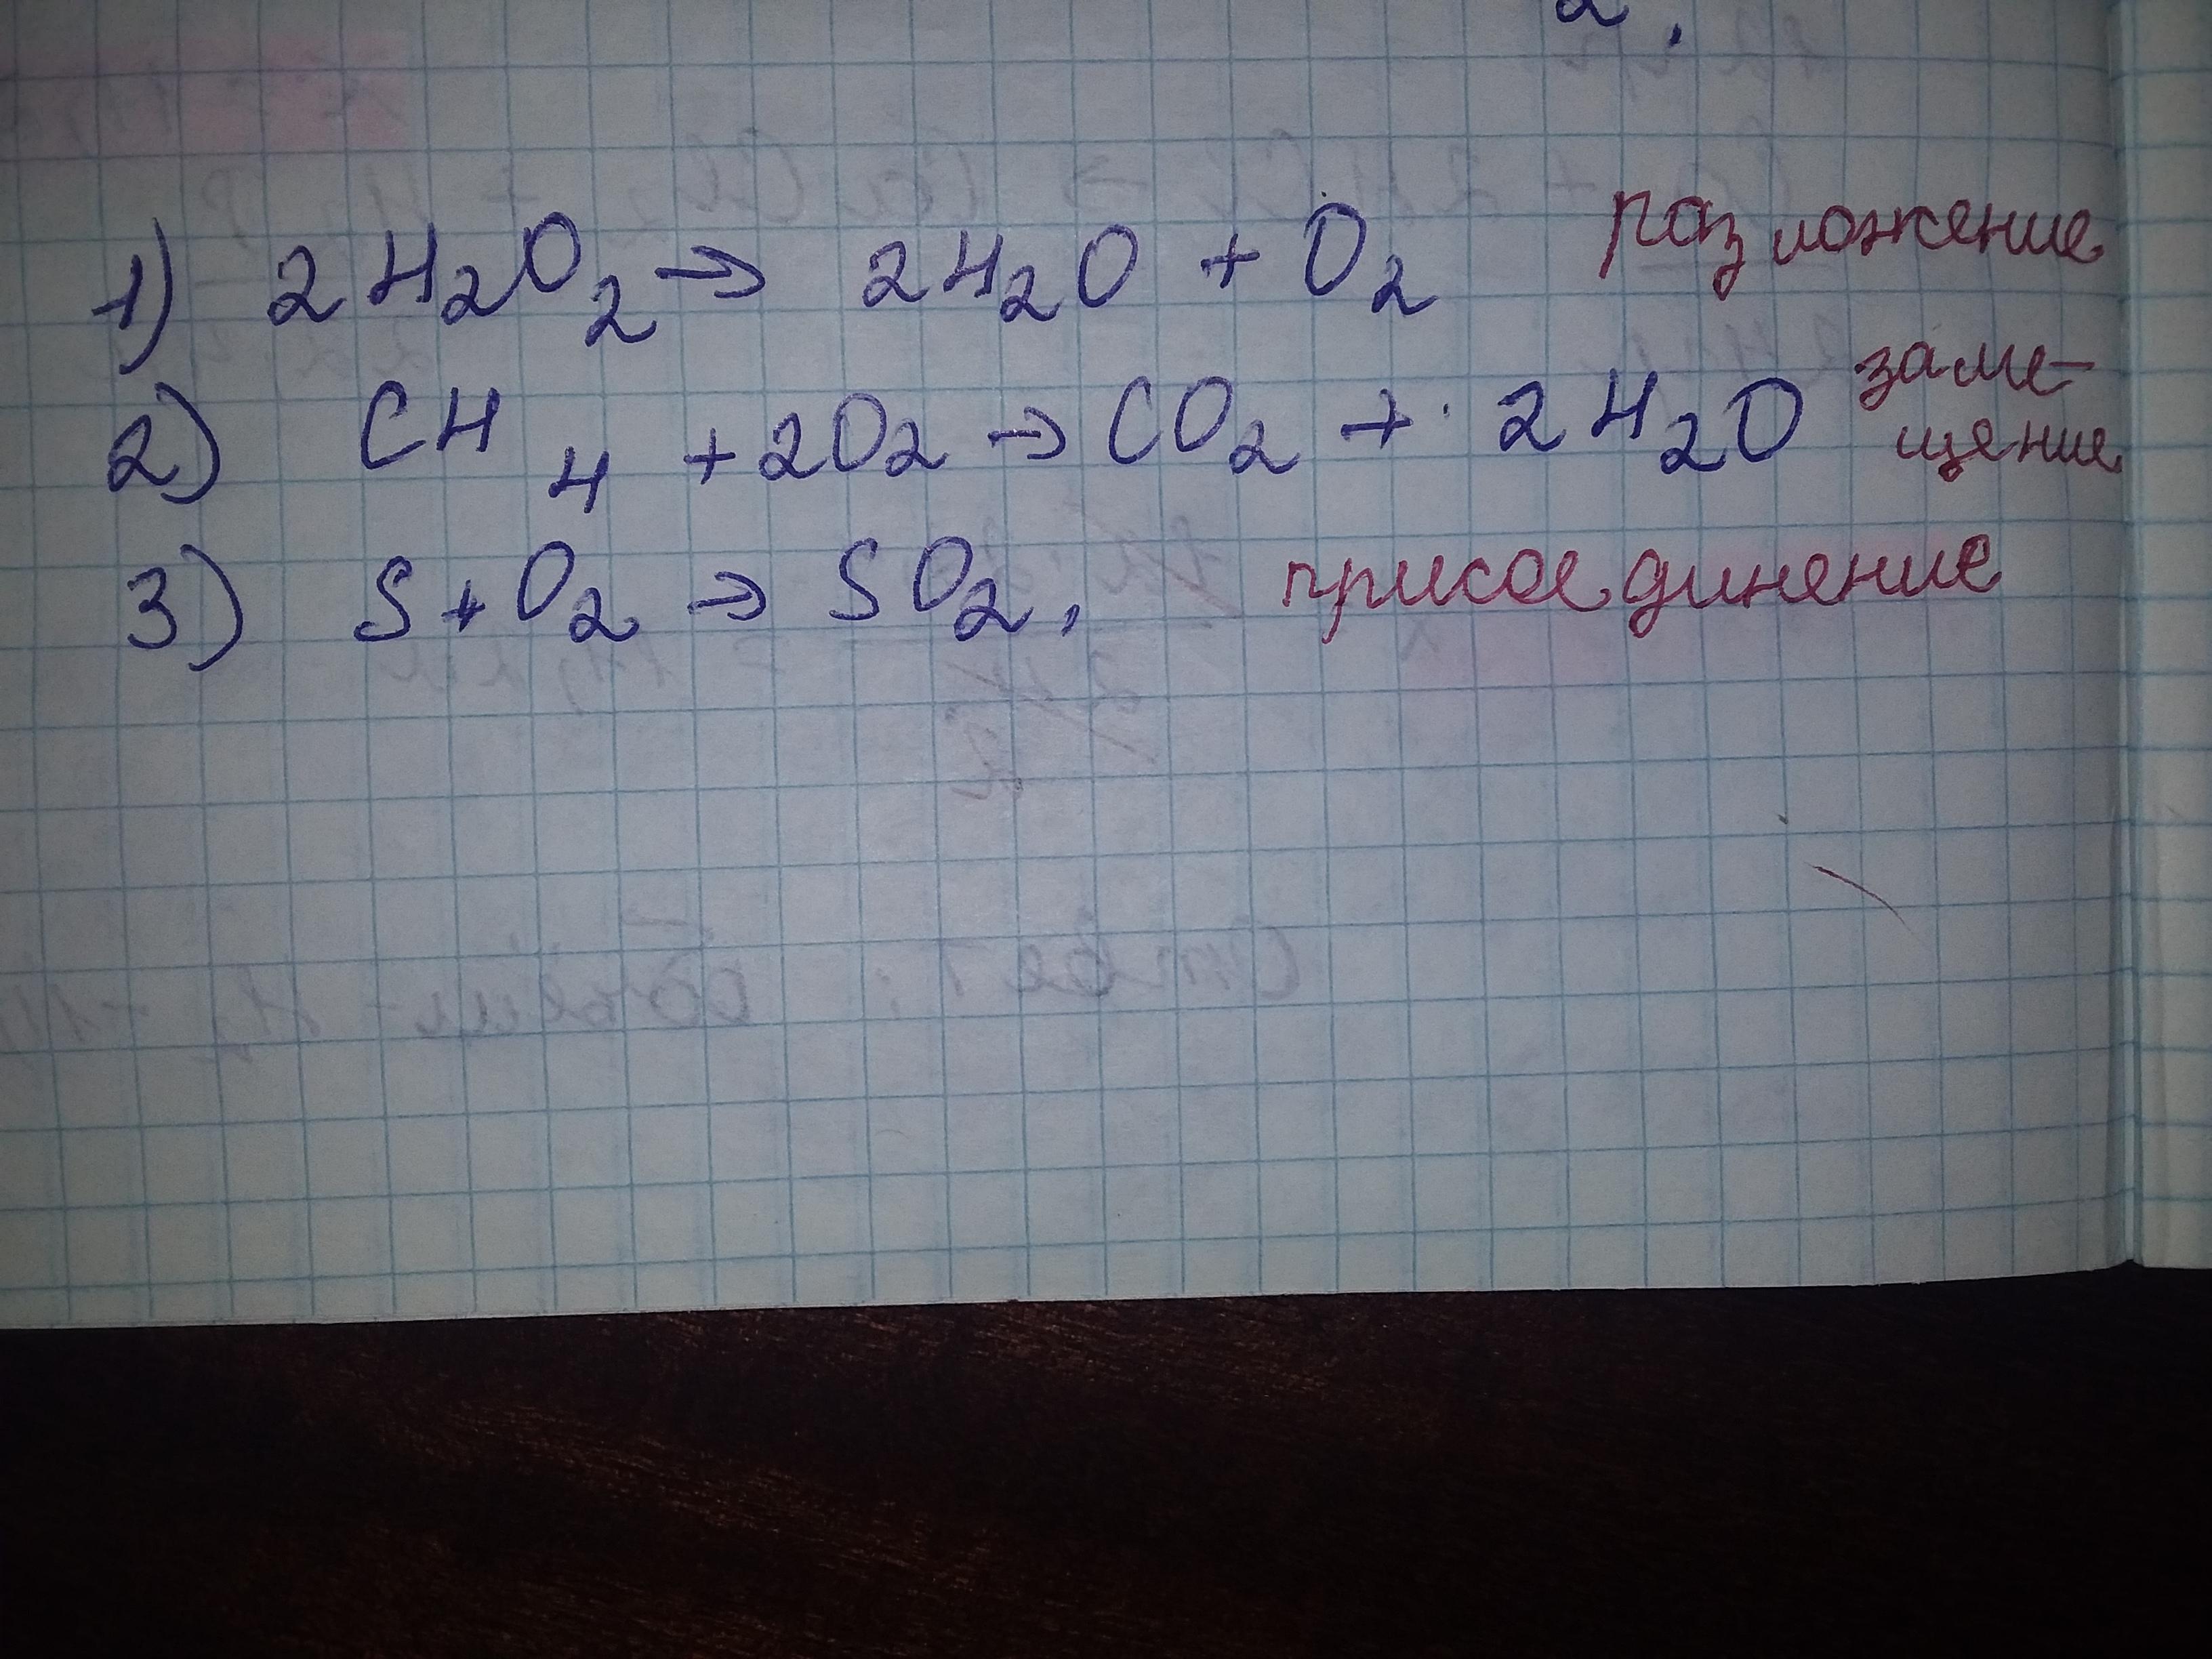 2.
1) 2H₂O₂ → 2H₂O + O₂ разложение
2) CH₄ + 2O₂ → CO₂ + 2H₂O заме-
щение
3) S + O₂ → SO₂, присоединение
Ответ: Объём - H₂